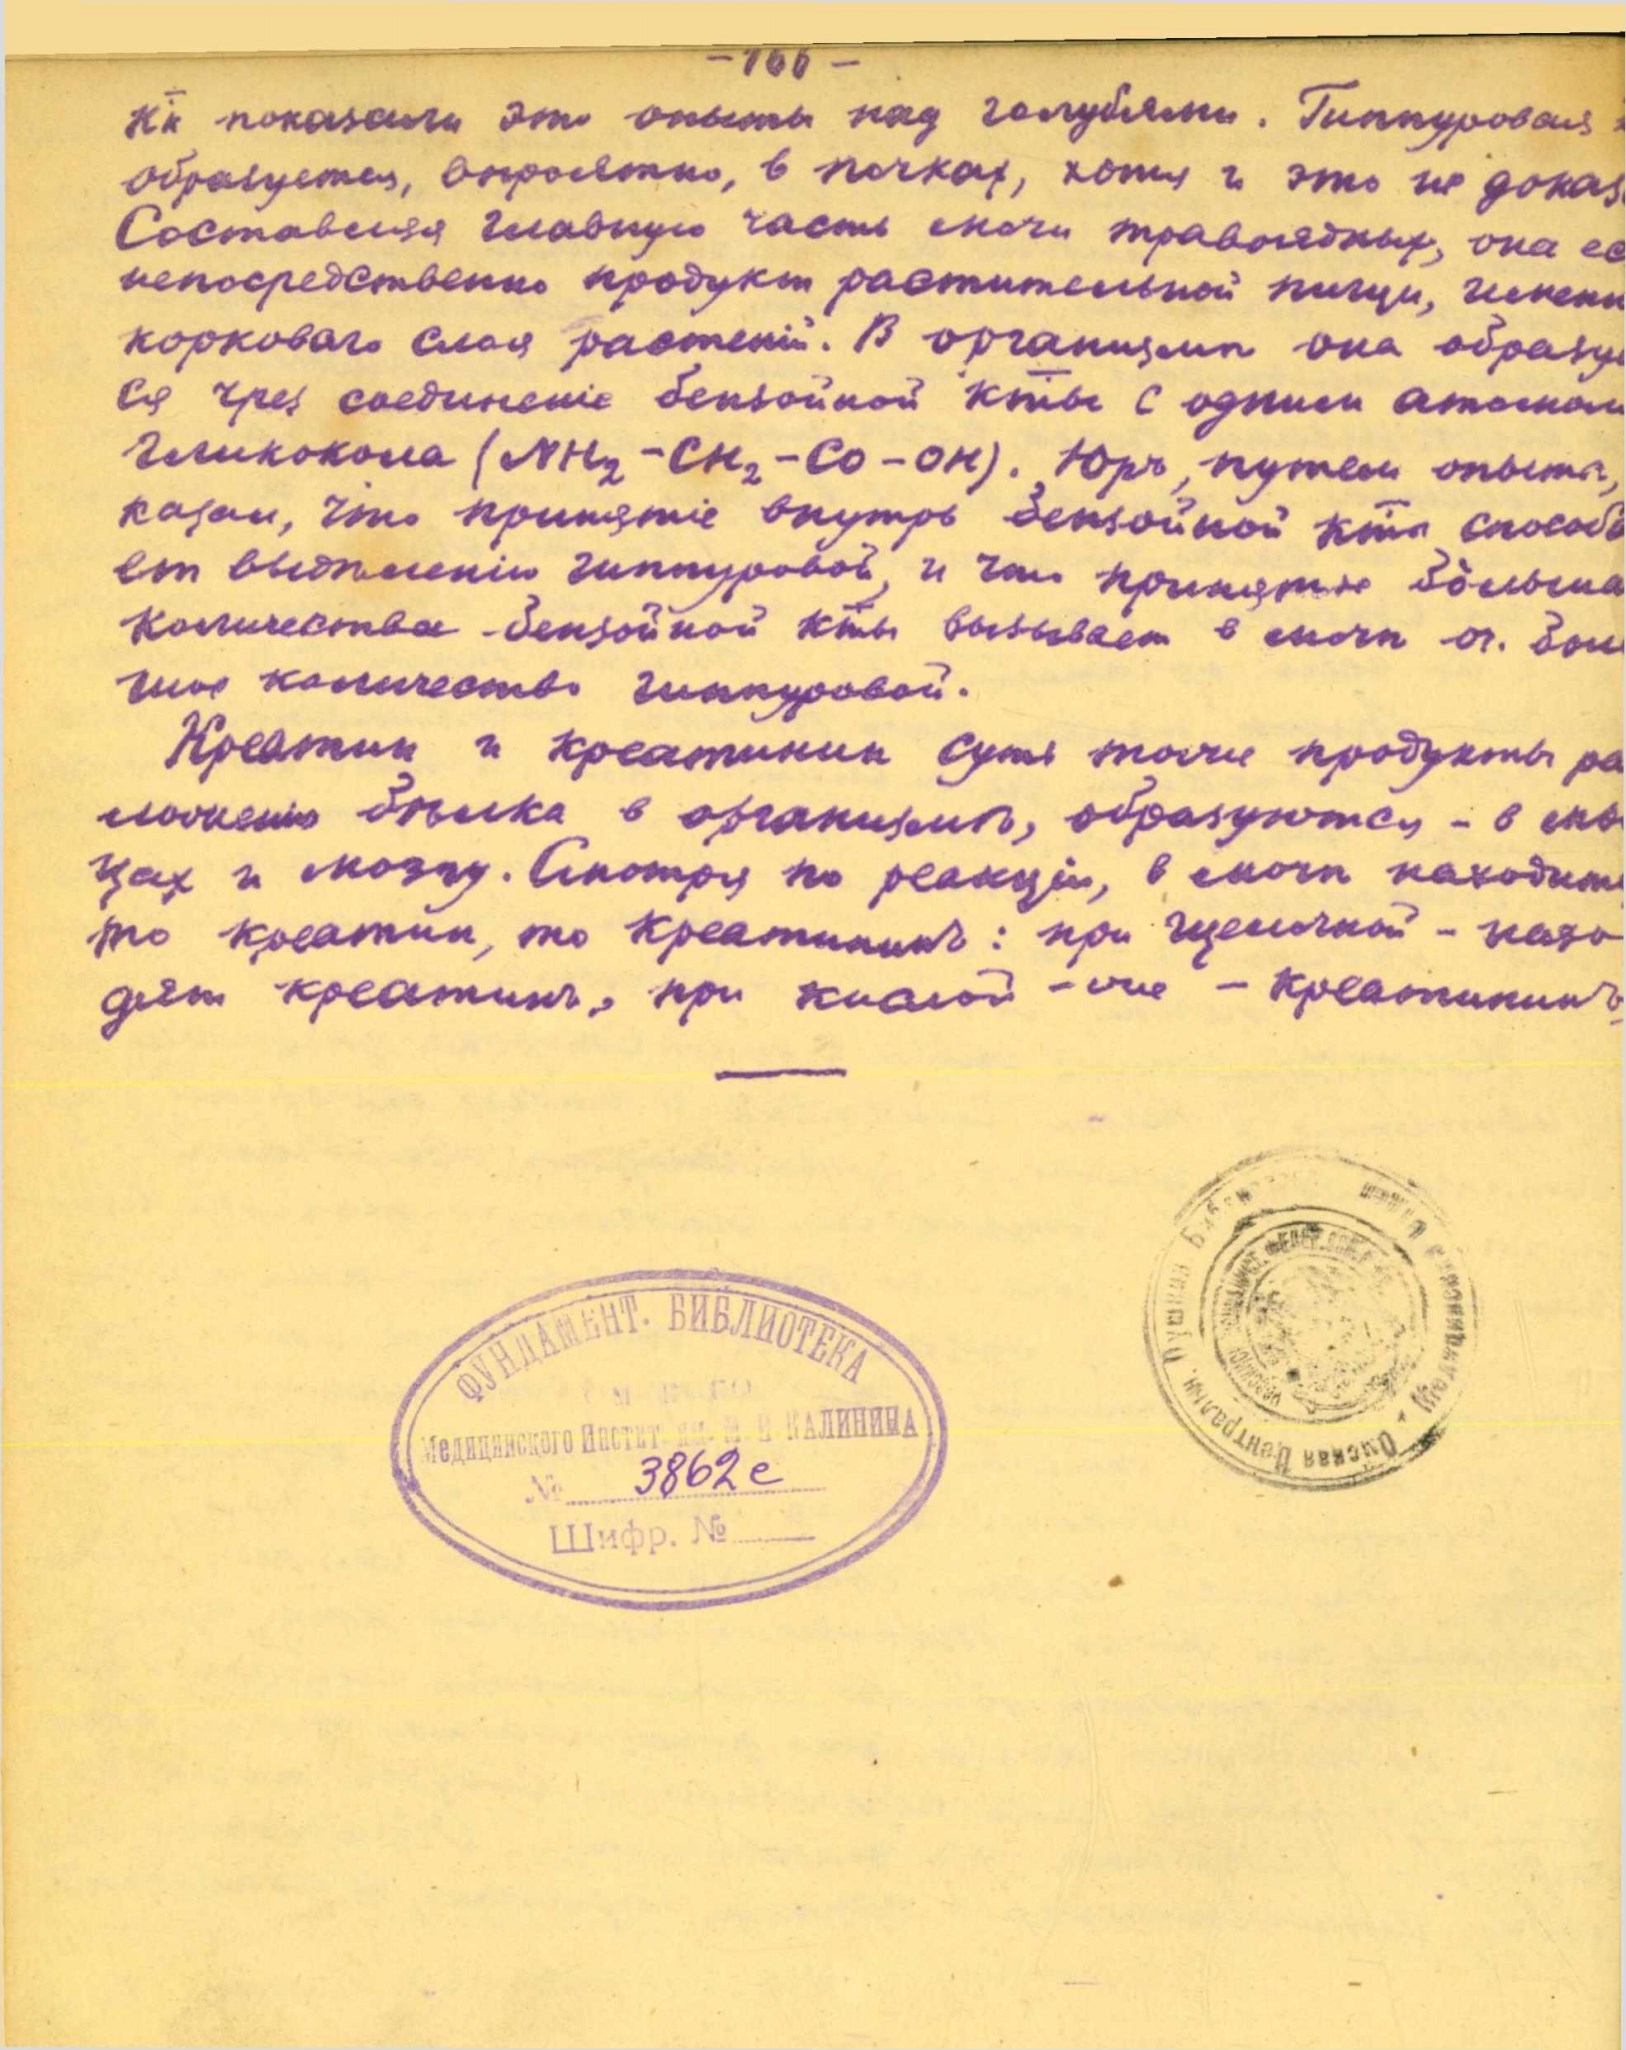 -166-
кк показали это опыты над голубями. Гиппуровая
образуется, вѣроятно, в почках, хотя и это не доказ
Составляя главную часть мочи травоядных, она ес
непосредственно продукт растительной пищи, именн
корковаго слоя растеній. В организмѣ она образуе
ся чрез соединеніе бензойной кты с одним атомом
гликокола (NH2-CH2-CO-OH). Юръ, путем опыта,
казал, что принятіе внутрь бензойной кты способ
ет выдѣленію гиппуровой, и что принятіе больша
количества бензойной кты вызывает в мочѣ оч. бол
шое количество гиппуровой.
Креатин и креатинин суть тоже продукты ра
ложенія бѣлка в организмѣ, образуются - в мы
цах и мозгу. Смотря по реакціи, в мочѣ находит
то креатин, то креатининъ: при щелочной - нахо
дят креатинъ, при кислой -же - креатининъ
ФУНДАМЕНТ. БИБЛИОТЕКА
Медицинского Инстит. им. М. И. КАЛИНИНА
№ 3862е
Шифр. №
Омская Централън. Пушкин. Библиотека